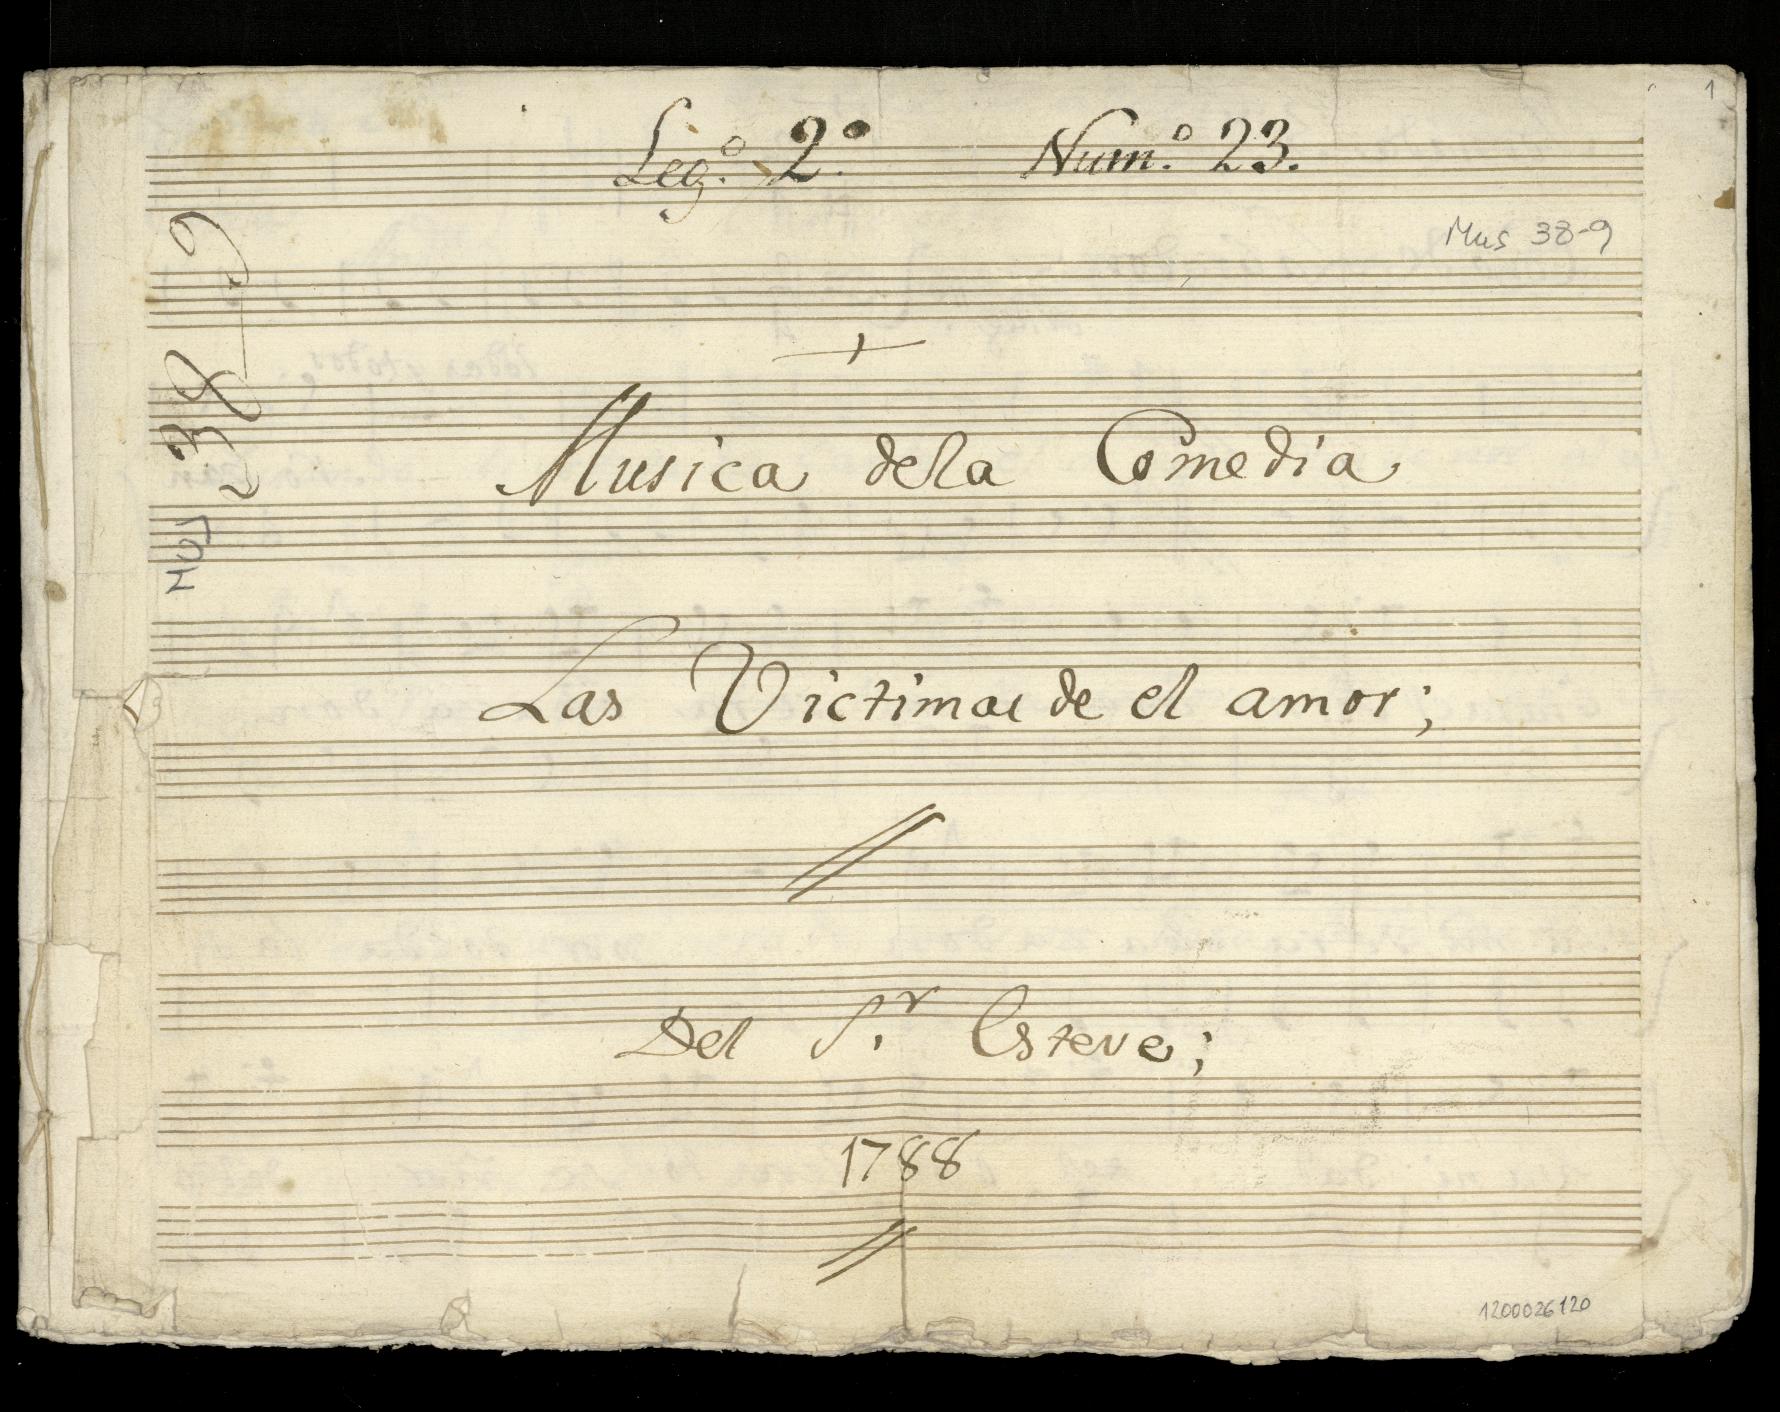 1
Leg.º 2.º Num.º 23.
Mus 38-9
MUS 38-9
Musica dela Comedia
Las Victimas de el amor;
Del S.r Esteve;
1788
1200026120